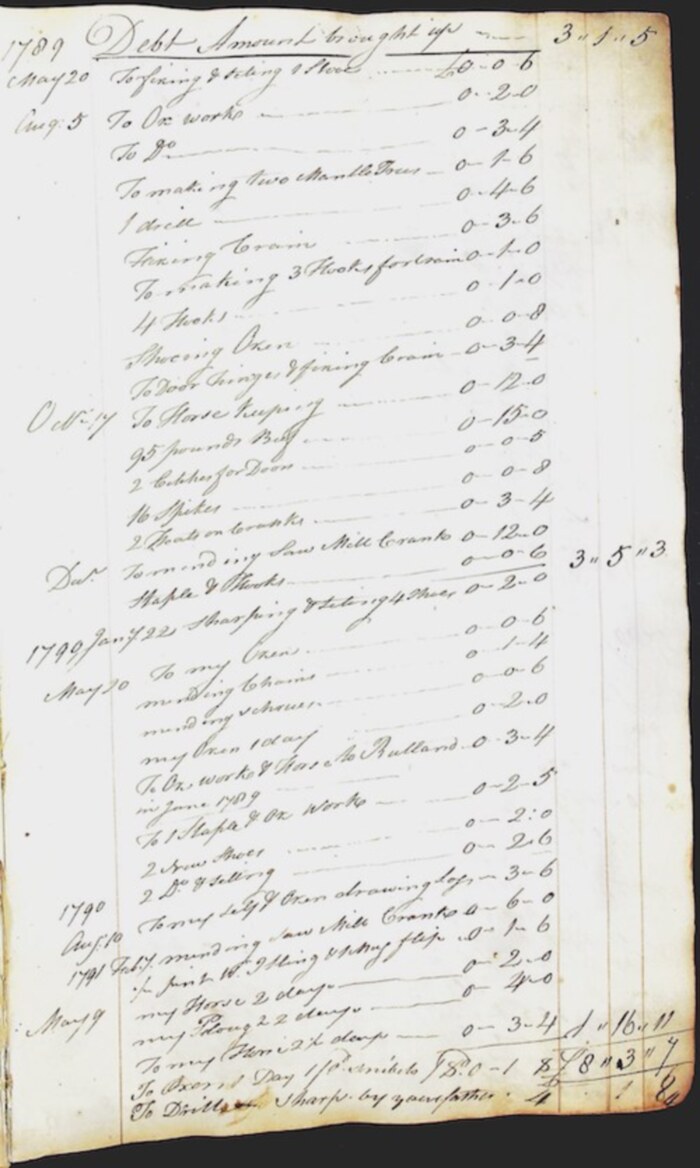 1789 Debt Amount brought up 3 " 1 " 5
May 20 To fixing & seting 1 Shoe £0-0-6
Aug. 5 To Ox work 0-2-0
To Do 0-3-4
To making two Mantle Trees 0-1-6
1 drill 0-4-6
Fixing Crain 0-3-6
To making 3 Hooks for Crain 0-1-0
4 Hooks 0-1-0
Shoeing Oxen 0-0-8
To Door hinges & fixing Crain 0-3-4
Oct. 17 To Horse Keeping 0-12-0
95 pounds Beef 0-15-0
2 Catches for Doors 0-0-5
16 Spikes 0-0-8
2 on Cranks 0-3-4
Decr To mending Saw Mill Crank 0-12-0
Staple & Hooks 0-0-6 3 " 5 " 3
1790 Jany 22 Sharping & seting 4 Shoes 0-2-0
May 20 To my Oxen 0-0-6
mending Chains 0-1-4
mending 0-0-6
my Oxen 1 day 0-2-0
To Ox work & Horse to Rutland 0-3-4
in June 1789
To 1 Staple & Ox Work 0-2-5
2 New Shoes 0-2-0
2 Do & setting 0-2-6
1790
Aug. 10 To my self & Oxen drawing logs 0-3-6
1791 Feby. mending Saw Mill Crank 0-6-0
0-1-6
my Horse 2 days 0-2-0
May 9 my Plough 2 days 0-4-0
To my Horse 2½ days 0-3-4 1 " 16 " 11
To Oxen 1 Day 0-1 8 £8 " 3 " 7
To Drill sharp. by your father 4 1 8